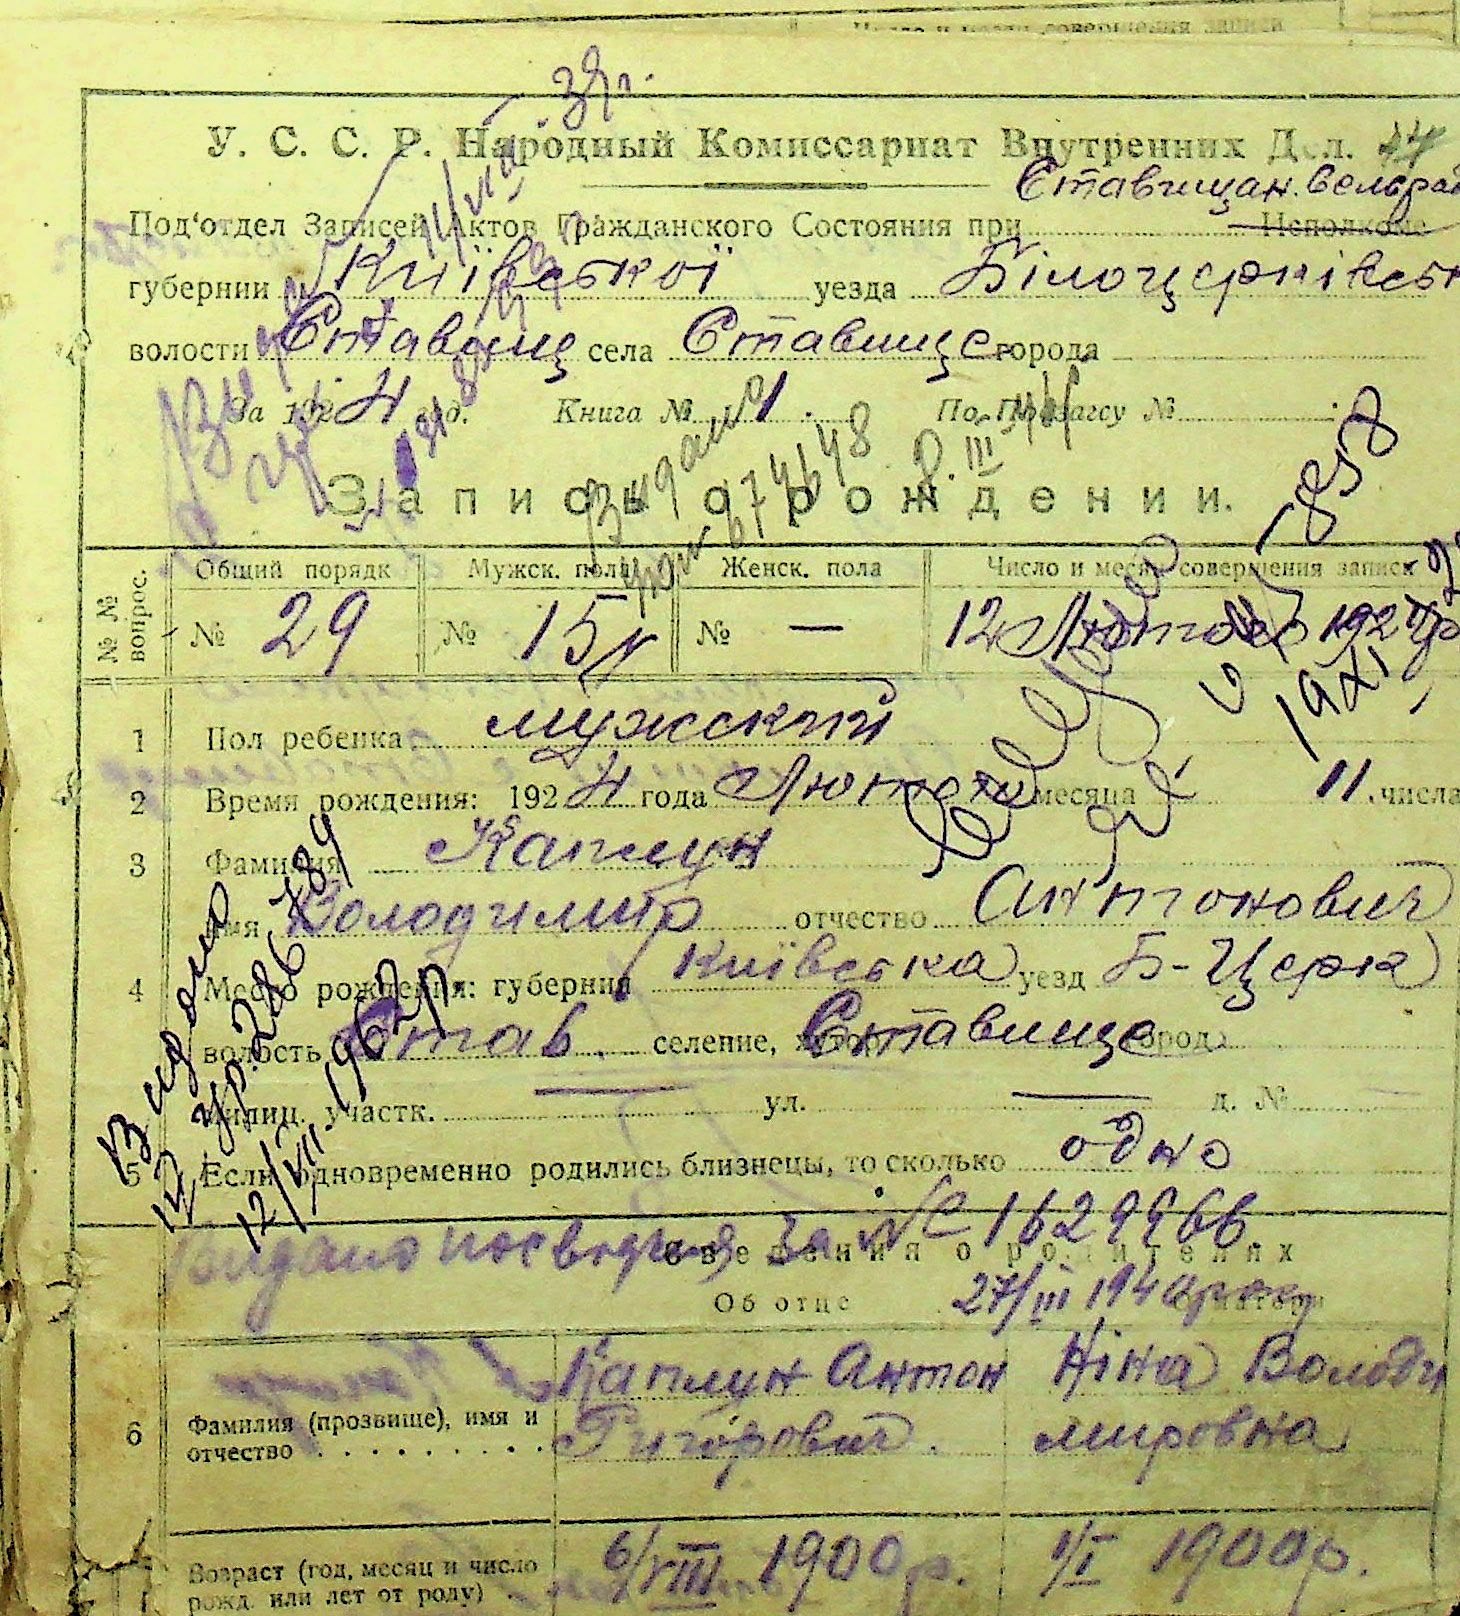 У. С. С. Р. Народный Комиссариат Внутренних Дел. 44
Под‘отдел Записей Актов Гражданского Состояния при Ставищан. сельрад Исполкоме
губернии Київської уезда Білоцерківськ
волости Ставищ села Ставище города
За 1924 год. Книга № 1. По Губзагсу №
Запись о рождении.
№№ вопрос. Общий порядк Мужск. пола Женск. пола Число и месяц совершения записи
№ 29 № 15 № — 12 Лютого 1924
1 Пол ребенка мужский
2 Время рождения: 1924 года Лютого месяца 11 числа
3 Фамилия Каплун
имя Володимир отчество Антонович
4 Место рождения: губерния Київська уезд Б-Церк
волость Став. селение, хутор Ставище город
милиц. участк. — ул. — д. №
5 Если одновременно родились близнецы, то сколько одно
Видано 12/VII 1962р.
Видано за № 1629966
Сведения о родителях
27/III 194
Об отце О матери
6 Фамилия (прозвище), имя и отчество Каплун Антон Григорович. Ніна Володимировна
Возраст (год, месяц и число рожд. или лет от роду) 6/VIII 1900р. 1/I 1900р.